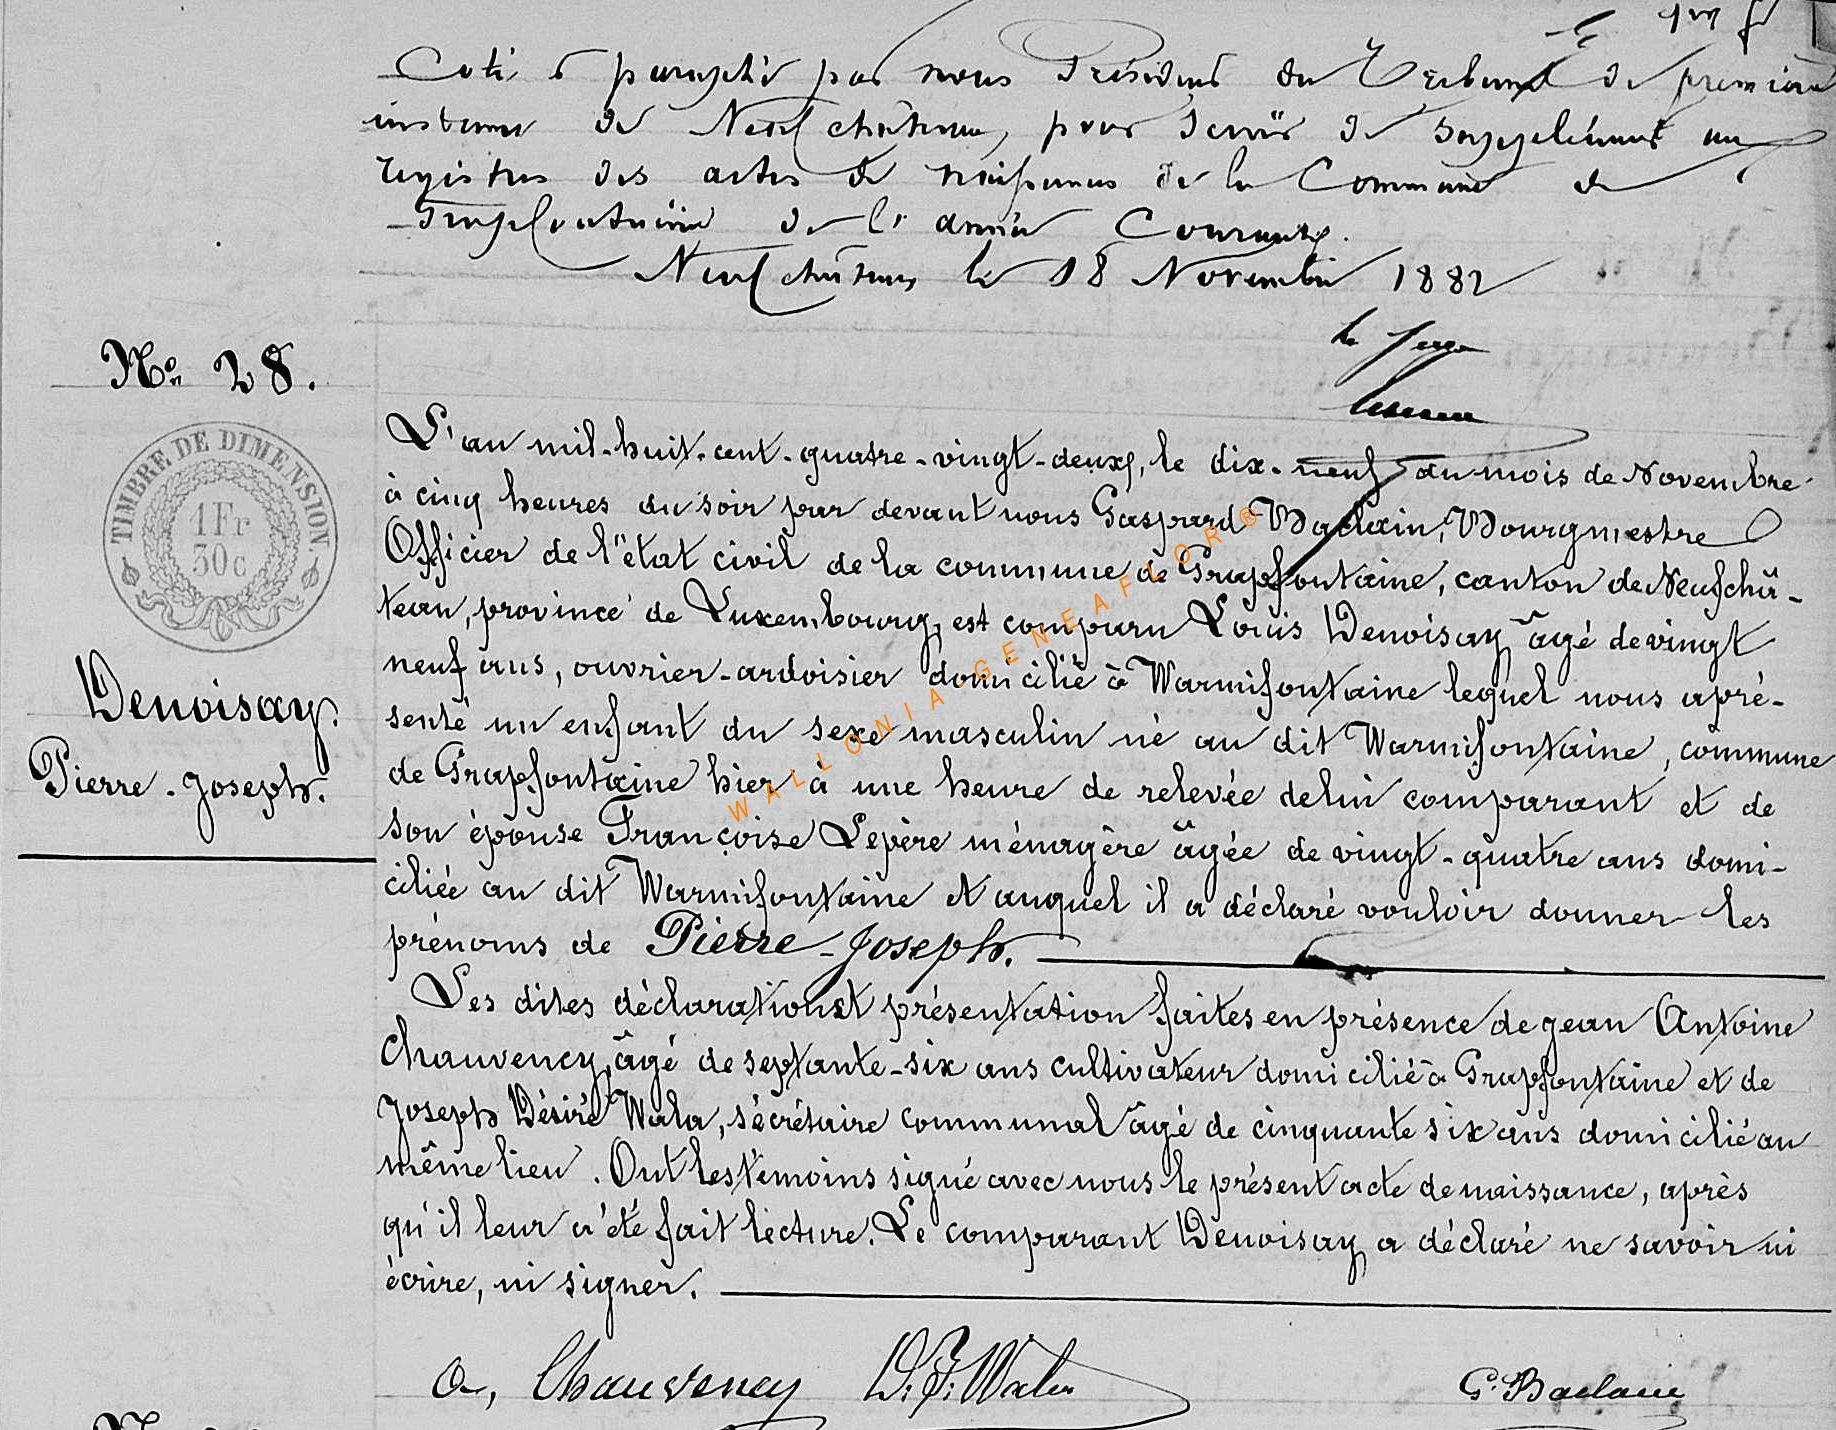 1er f
Coté & paraphé par nous Président du Tribunal de première
instance de Neufchâteau, pour servir de supplément au
registre des actes de naissances de la Commune de
Grapfontaine de l'année Courante.
Neufchâteau le 18 Novembre 1882
le Juge
No. 28.
L'an mil-huit-cent-quatre-vingt-deux, le dix-neuf du mois de Novembre
à cinq heures du soir par devant nous Gaspard Baclain, Bourgmestre
Officier de l'état civil de la commune de Grapfontaine, canton de Neufchâ-
teau, province de Luxembourg, est comparu Louis Denoisay âgé de vingt
neuf ans, ouvrier-ardoisier domicilié à Warmifontaine lequel nous a pré-
senté un enfant du sexe masculin né au dit Warmifontaine, commune
de Grapfontaine hier à une heure de relevée de lui comparant et de
son épouse Françoise Lepère ménagère âgée de vingt-quatre ans domi-
ciliée au dit Warmifontaine et auquel il a déclaré vouloir donner les
prénoms de Pierre-Joseph.
Les dites déclarations et présentation faites en présence de Jean Antoine
Chauvency, âgé de septante-six ans cultivateur domicilié à Grapfontaine et de
Joseph Désiré Wala, sécrétaire communal âgé de cinquante six ans domicilié au
même lieu. Ont les témoins signé avec nous le présent acte de naissance, après
qu'il leur a été fait lecture. Le comparant Denoisay a déclaré ne savoir ni
écrire, ni signer.
TIMBRE DE DIMENSION.
1Fr
30c
Denoisay.
Pierre-Joseph.
WALLONIA-GENEAFLOR®
a, Chauvency D.J. Wala G. Baclain